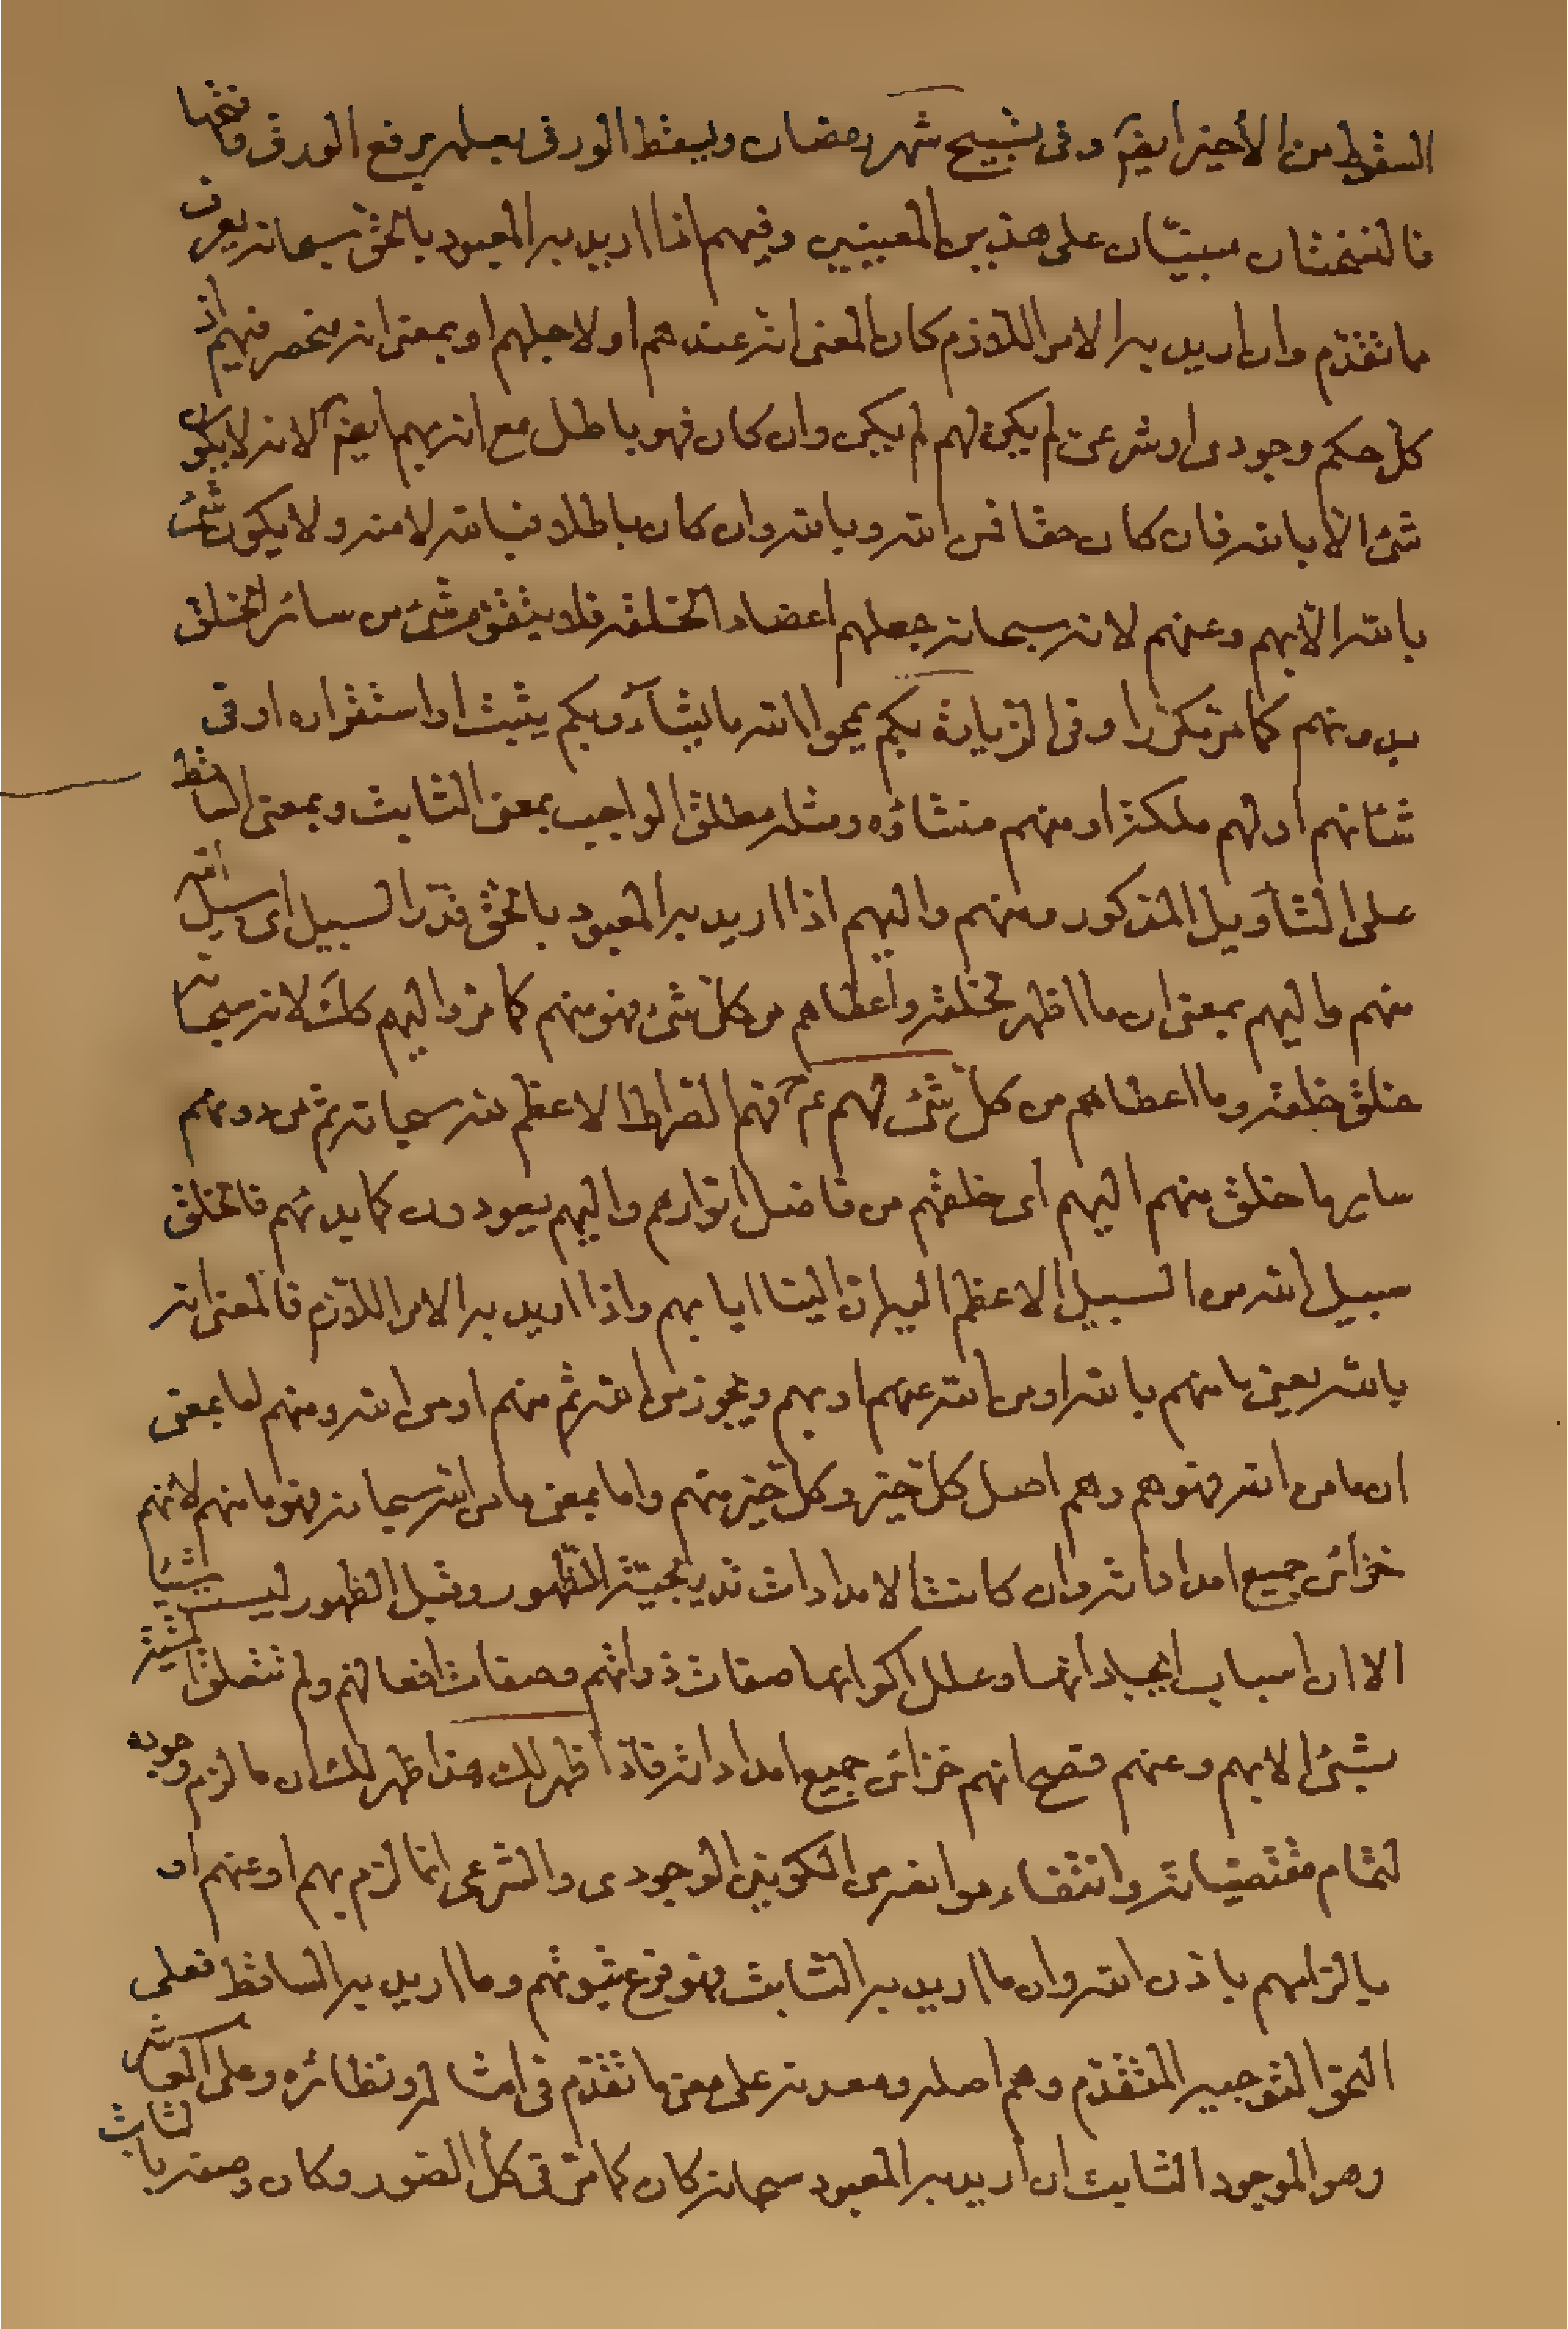 السقوط من الأخير ايضا وفى تسبيح شهر رمضان ويسقط الورق بعلمه برفع الورق وانتحا
فالنسختان مبنيتان على هذين المعنيين وفيهم اذا اريد به المعبود بالحق سبحانه يعرف
ما تقدم وان اريد به الامر اللازم كان المعنى انه عندهم او لاجلهم او بمعنى انه منحصر فيهم اذ
كل حكم وجودى او شرعى لم يكن لهم لم يكن وان كان فهو باطل مع انه بهم ايضا لانه لا يكون
شئ الا بالله فان كان حقا فمن الله وبالله وان كان باطلا فبالله لا منه ولا يكون شئ
بالله الا بهم وعنهم لانه سبحانه جعلهم اعضادا لخلقه فلا يتقوم شئ من سائر الخلق
بدونهم كما مر مكررا وفى الزيارة بكم يمحوا الله ما يشاء وبكم يثبت او استقراره او فى
شانهم او لهم ملكه او منهم منشاؤه ومثله مطلق الواجب بمعنى الثابت وبمعنى الساقط
على التأويل المذكور ومنهم واليهم اذا اريد به المعبود بالحق قدر السبيل اى سبيل الله
منهم واليهم بمعنى ان ما اظهر لخلقه واعطاهم من كل شئ فهو منهم كما مر واليهم كذلك لانه سبحانه
خلق خلقه وما اعطاهم من كل شئ لهم ع فهم الصراط الاعظم لله سبحانه ثم من دونهم
ساير ما خلق منهم اليهم اى خلقهم من فاضل انوارهم واليهم يعودون كما بدئهم فالخلق
سبيل الله من السبيل الاعظم اليه ان الينا ايابهم واذا اريد به الامر اللازم فالمعنى انه
بالله يعنى ما منهم بالله او من الله عنهم او بهم ويجوز من الله ثم منهم او من الله ومنهم اما بمعنى
ان ما من الله فهو هم وهم اصل كل خير وكل خير منهم واما بمعنى ما من الله سبحانه فهو ما منهم لانهم
خزائن جميع امداداته وان كانت الامدادات تدريجية الظهور وقبل الظهور ليست شيئا
الا ان اسباب ايجاداتها وعلل اكوانها صفات ذواتهم وصفات افعالهم ولم تتعلق مشيته
بشئ الا بهم وعنهم فصح انهم خزائن جميع امداداته فاذا ظهر لك هذا ظهر لك ان ما لزم وجوده
لتمام مقتضياته وانتفاء موانعه من التكوينى الوجودى والشرعى انما لزم بهم او عنهم او
بالزامهم باذن الله وان ما اريد به الثابت فهو فرع ثبوتهم وما اريد به الساقط فعلى
النحو التوجيه المتقدم وهم اصله ومعدنه على معنى ما تقدم فى امثاله ونظائره وعلى العاشر
وهو الموجود الثابت ان اريد به المعبود سبحانه كان كما مر فى كل الصور وكان وصفه بالثابت